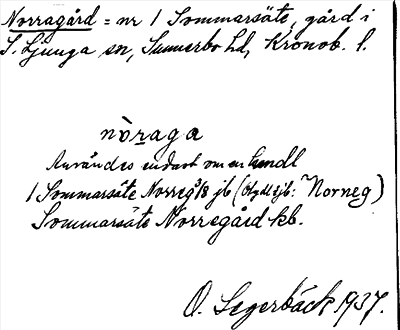 Norragård = nr 1 Sommarsäte, gård i
S. Ljunga sn, Sunnerbo hd, Kronob. l.
nòraga
Användes endast om en
1 Sommarsäte Norreg 1/8 jb ( jb: Norneg)
Sommarsäte Norregård kb.
O. Segerbäck 1937.